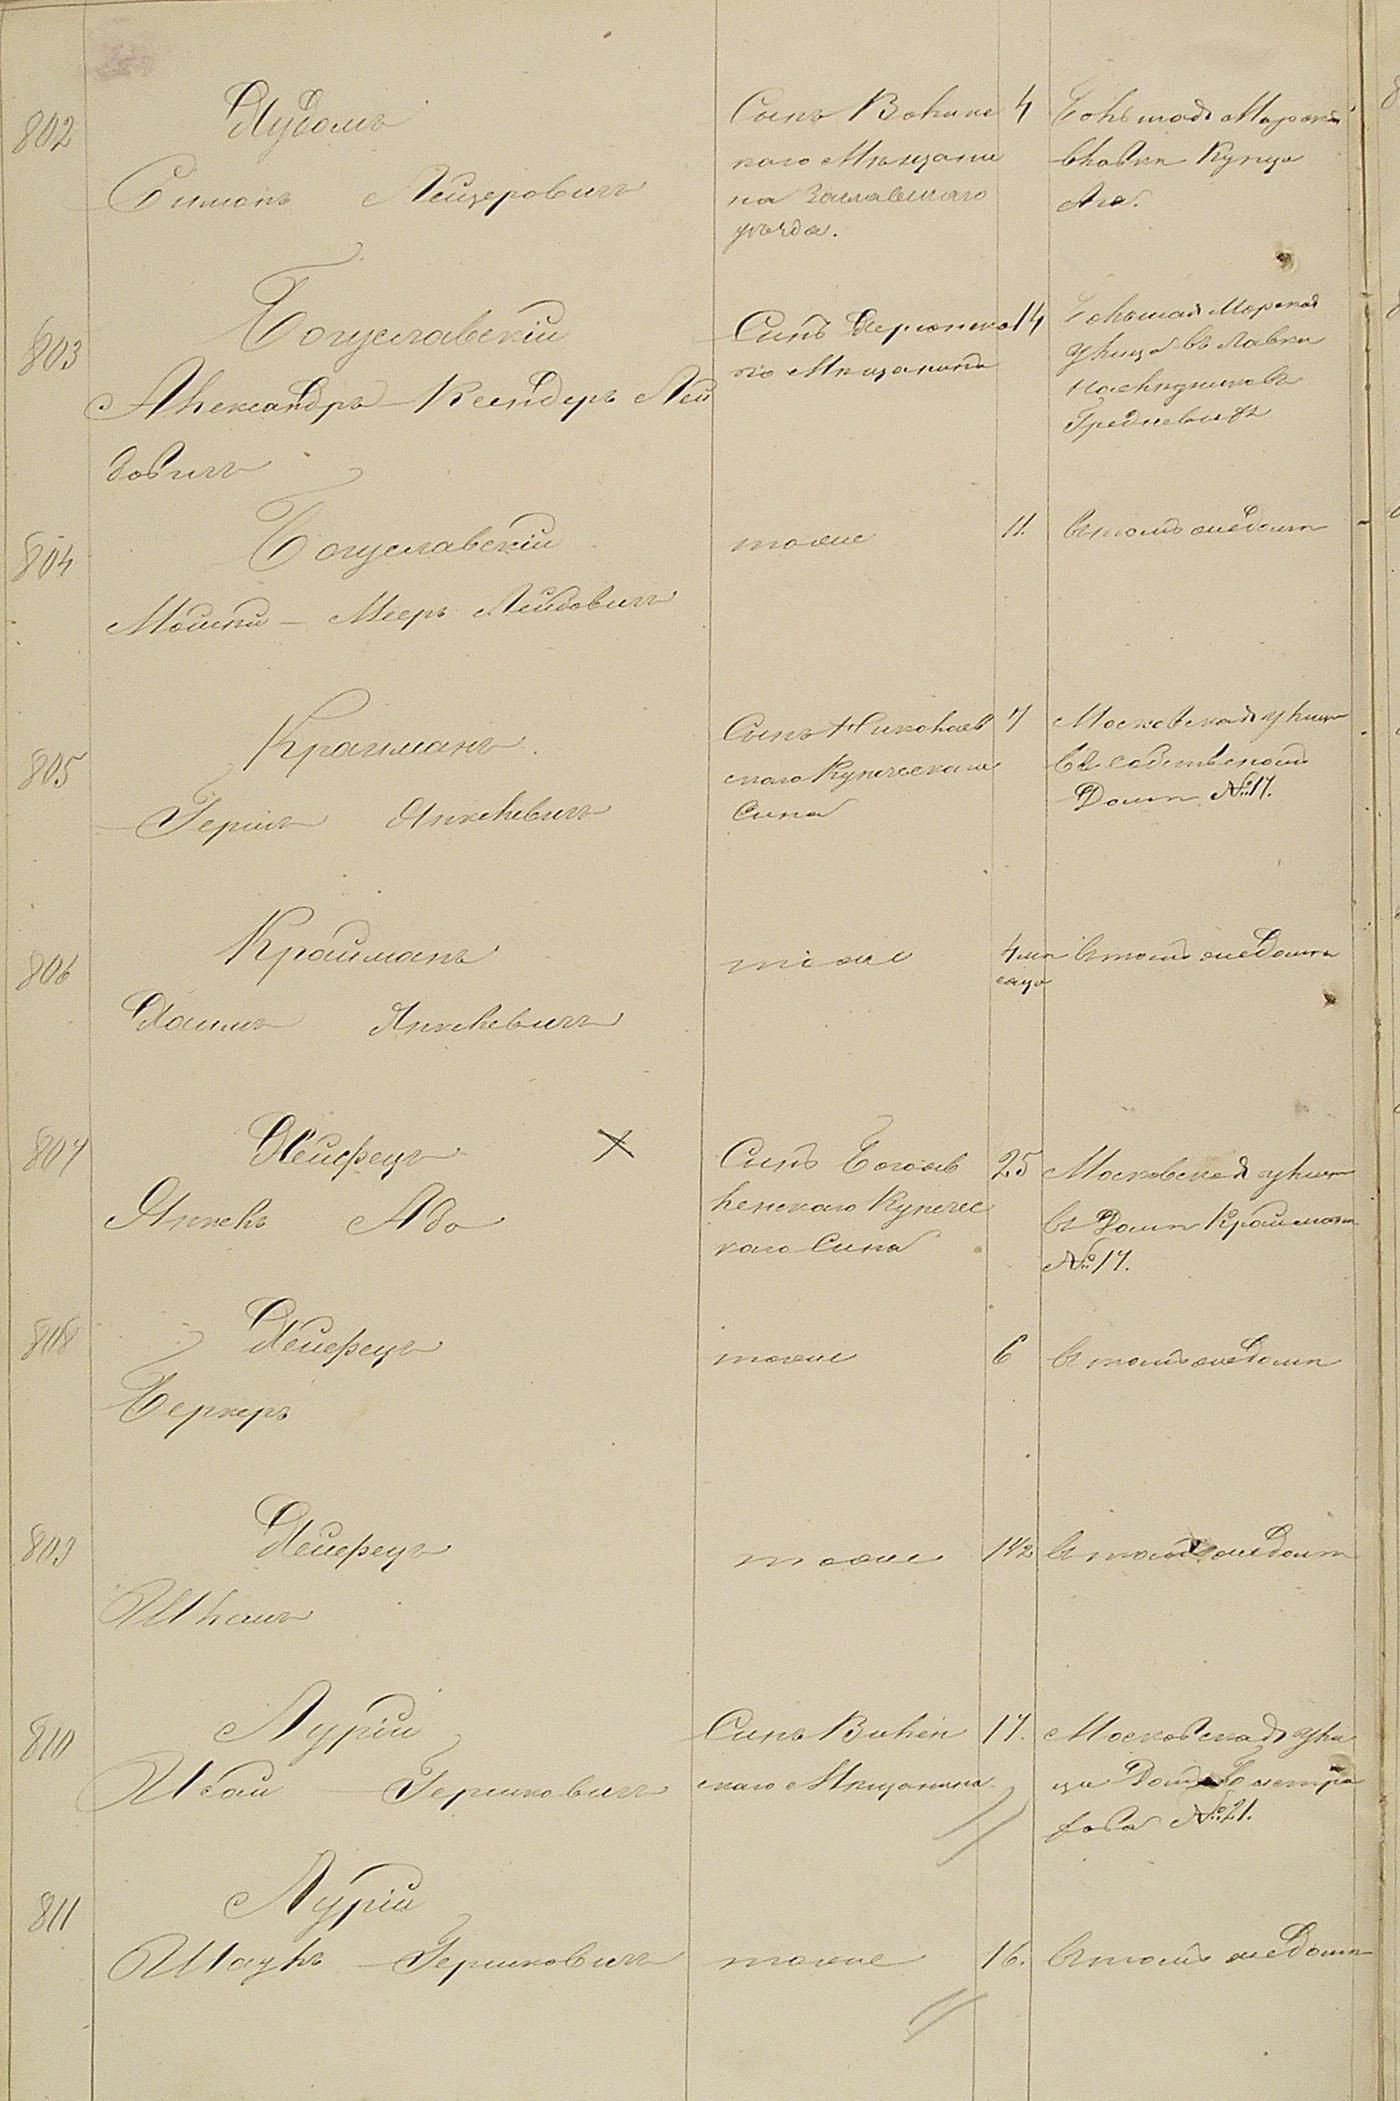 802
Дудомъ
Симонъ Лейзеровичъ
Сынъ Волынс
каго Мѣщани
на Заславскаго
уѣзда.
4
Большая Морская
въ лавкѣ Купца
803
Богуславскій
Александръ - Ксендеръ Лей
бовичъ
Сынъ Херсонска
го Мѣщанина
14
Большая Морская
улица въ лавкѣ
наслѣдниковъ
804
Богуславскій
Мошки - Мееръ Лейбовичъ
тоже
11.
въ томъ же домѣ
805
Крайманъ
Гершъ Янкелевичъ
Сынъ Николаев
скаго Купеческаго
Сына
7
Московская улица
въ собственномъ
Домѣ №17.
806
Крайманъ
Хаимъ Янкелевичъ
тоже
4 мѣ
сяца
въ томъ же Домѣ
807
Хейфецъ
Янкель Аба
Сынъ Богояв
ленскаго Купечес
каго Сына
25
Московская улица
въ Домѣ Краймана
№17.
808
Хейфецъ
Беркеръ
тоже
6
въ томъ же Домѣ
809
Хейфецъ
Шлемъ
тоже
1 1/2
въ томъ же Домѣ
810
Лурій
Шбай Гершковичъ
Сынъ Вилен
скаго Мѣщанина
17.
Московская ули
ца Домъ
№21.
811
Лурій
Шаулъ Гершковичъ
тоже
16.
въ томъ же Домѣ